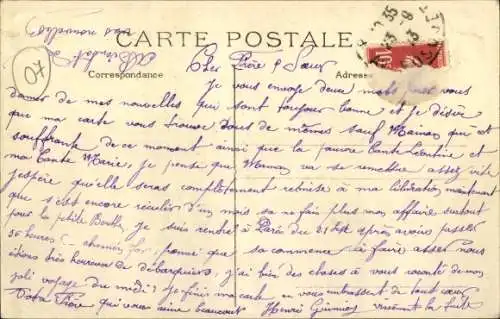 CARTE POSTALE
Correspondance
Adresse
07
Cher Frère & Sœur
Je vous envoye deux mots pour vous
donner de mes nouvelles qui sont toujours bonne et je désire
que ma carte vous trouve tous de mêmes sauf Maman qui est
souffrante de ce moment ainsi que la pauvre tante Léontine et
ma tante Marie, je pense que Maman va se remettre assez vite
j'espère qu'elle seras complètement remise à ma libération maintenant
que s'est encore reculer d'un mois sa ne fais plus mon affaire surtout
pour la petite je suis rendre à Paris du 21 Sept après avoir passer
36 heures chemin fer, pourvu que sa commence à faire assez nous
étions très heureux de débarquer, j'ai bien des choses à vous raconté de mon
joli voyage du midi, je finis ma carte en vous embrassant de tout cœur
Votre Frère qui vous aime beaucoup Henri vivement la fuite